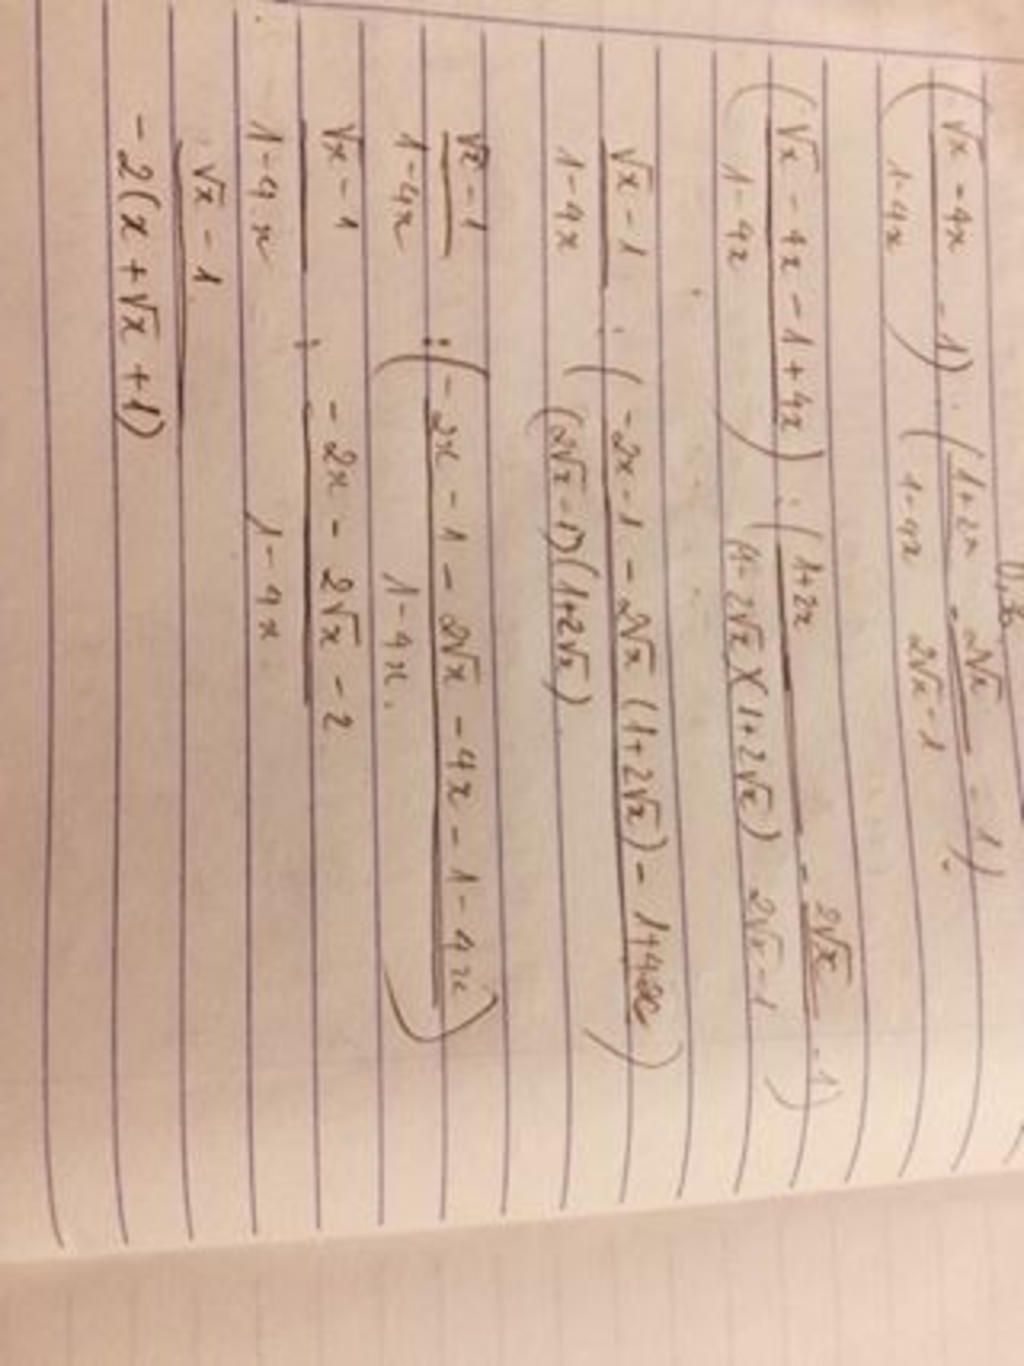 (√x - 4x / 1-4x - 1) : (1+2x / 1-4x - 2√x / 2√x-1 - 1)
(√x - 4x - 1 + 4x / 1 - 4x) : (1+2x / (1-2√x)(1+2√x) - 2√x / 2√x-1 - 1)
√x - 1 / 1-4x : (-2x-1 - 2√x (1+2√x) - 1+4x / (2√x-1)(1+2√x))
√x - 1 / 1-4x : (-2x - 1 - 2√x - 4x - 1 - 4x / 1-4x)
√x - 1 / 1-4x : -2x - 2√x - 2 / 1-4x
√x - 1 / -2(x+√x+1)